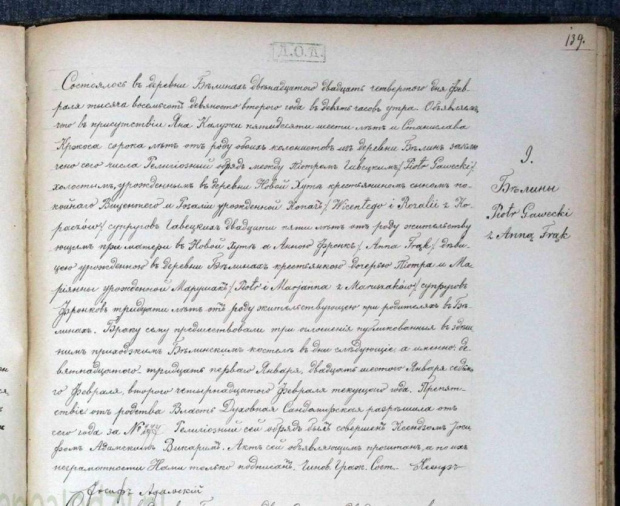 139.
А.О.К.
Состоялось въ деревни Бѣлинахъ двѣнадцатого двадцать четвертого дня Фев-
раля тысяча восемьсотъ девяносто второго года въ девять часовъ утра. Объявляемъ
что въ присутствіи Яна Калужи пятидесяти шести лѣтъ и Станислава
Крокоса сорока лѣтъ отъ роду обоихъ колонистовъ изъ деревни Бѣлинъ заклю
чено сего числа Религіозный обрядъ между Петромъ Гавецкимъ /Piotr Gawecki/
холостымъ, урожденнымъ въ деревни Новой Хутѣ крестьяниномъ сыномъ по-
койнаго Викентего и Розаліи урожденной /Wicentego i Rozalii z
супруговъ Гавецкихъ двадцати пяти лѣтъ отъ роду жительству
ющимъ при матери въ Новой Хутѣ а Анною Фронкъ /Anna Frąk/ дѣви-
цею урожденною въ деревни Бѣлинахъ крестьянкою дочерею Петра и Ма-
ріянны урожденной /Piotr i Marjanna z супруговъ
Фронковъ тридцати лѣтъ отъ роду жительствующею при родителяхъ въ Бѣ-
линахъ. Браку сему предшествовали три оглашенія публикованныя въ здѣш-
нимъ приходскимъ Бѣлинскимъ костелѣ въ дни слѣдующіе, а именно: де-
вятнадцатого тридцать перваго Января, двадцать шестого Января седьмо-
го Февраля, второго четырнадцатого Февраля текущаго года. Препят-
ствіе отъ родства Власть Духовная Сандомирская разрѣшила отъ
сего года за № Религіозный сей обрядъ былъ совершенъ Ксендзомъ Іоси-
фомъ Адамскимъ Викаріемъ. Актъ сей объявляющимъ прочитанъ, а по ихъ
неграмотности Нами только подписанъ. Чинов. Гражд. Сост. Ксендзъ
Іосифъ
9.
Бѣлины
Piotr Gawecki
z Anną Frąk